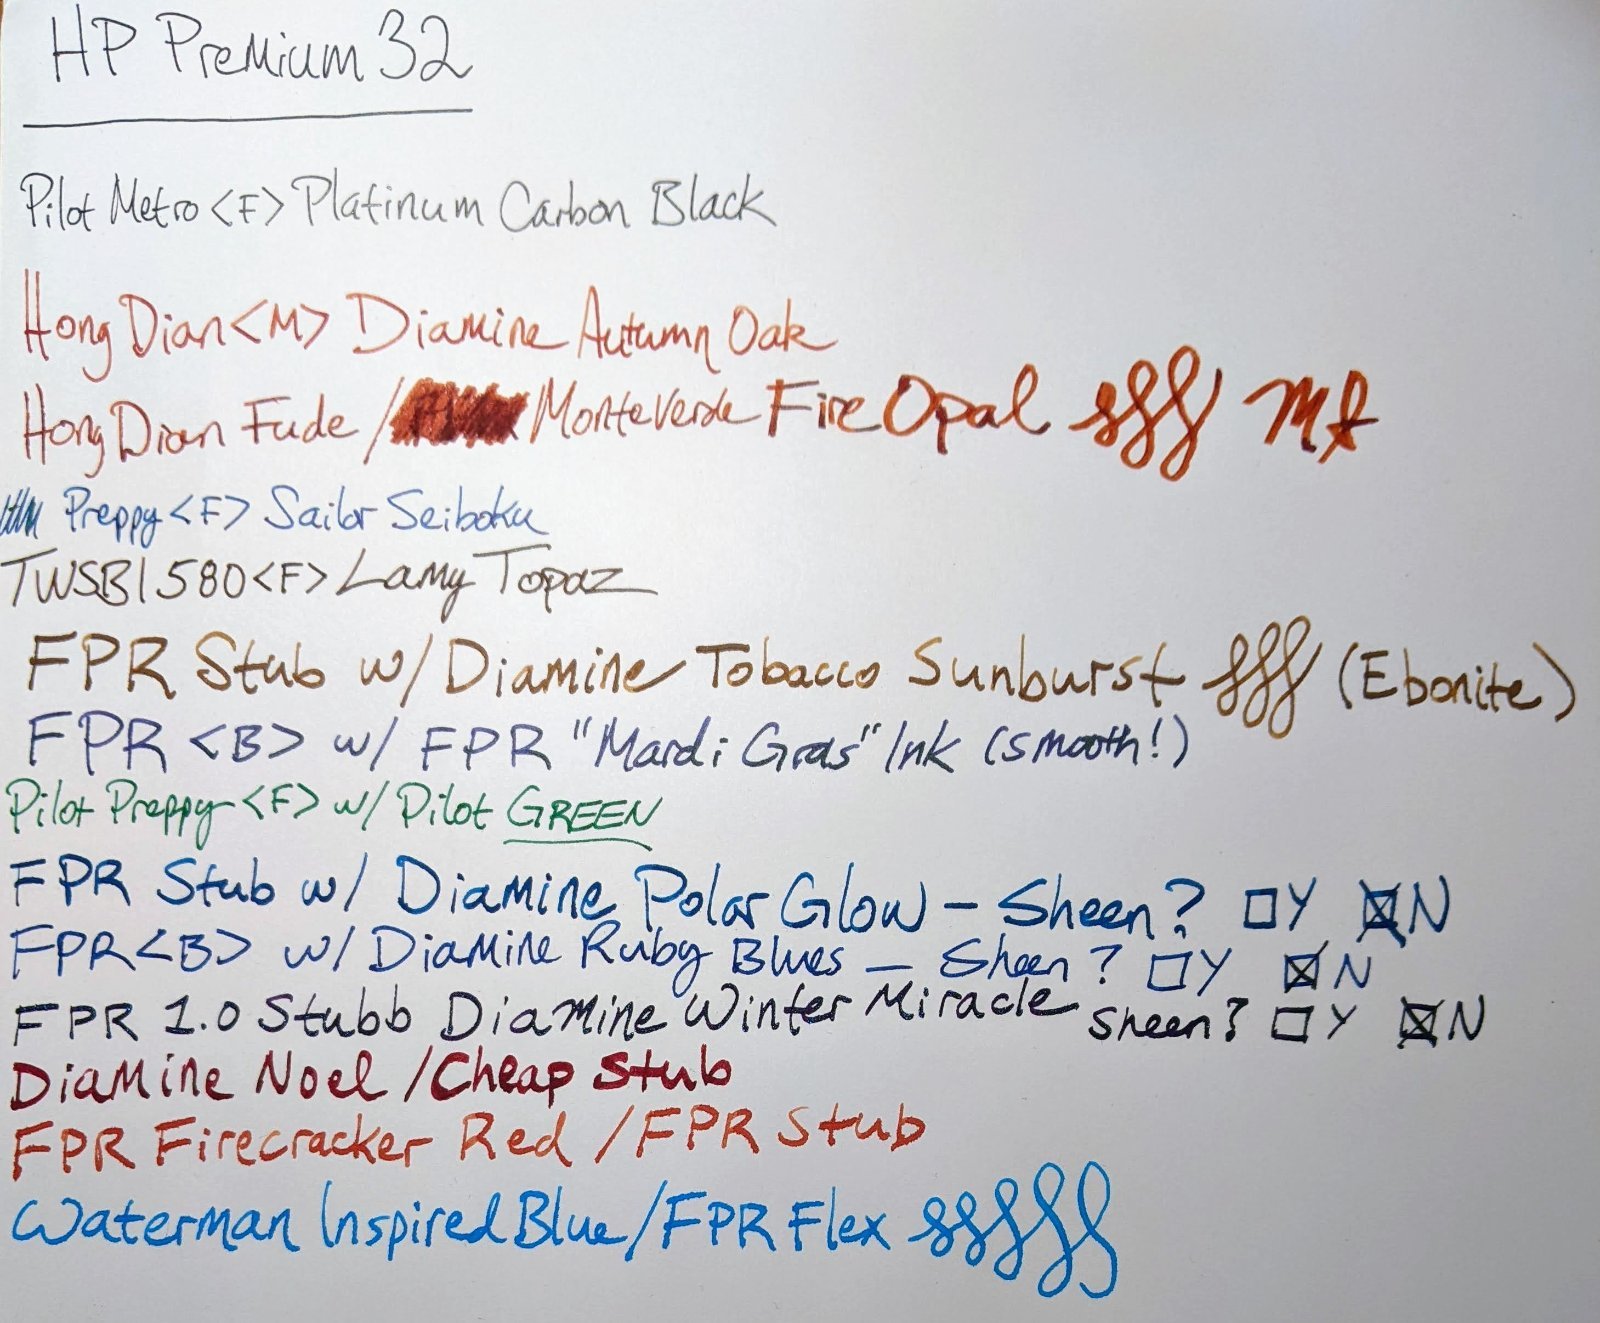 HP Premium 32
Pilot Metro <F> Platinum Carbon Black
Hong Dian <M> Diamine Autumn Oak
Hong Dian Fude / MonteVerde Fire Opal
Preppy <F> Sailor Seiboku
TWSBI 580 <F> Lamy Topaz
FPR Stub w/ Diamine Tobacco Sunburst (Ebonite)
FPR <B> w/ FPR "Mardi Gras" Ink (smooth!)
Pilot Preppy <F> w/ Pilot GREEN
FPR Stub w/ Diamine Polar Glow - Sheen? ☐ Y ☒ N
FPR <B> w/ Diamine Ruby Blues - Sheen? ☐ Y ☒ N
FPR 1.0 Stubb Diamine Winter Miracle Sheen? ☐ Y ☒ N
Diamine Noel / Cheap Stub
FPR Firecracker Red / FPR Stub
Waterman Inspired Blue / FPR Flex